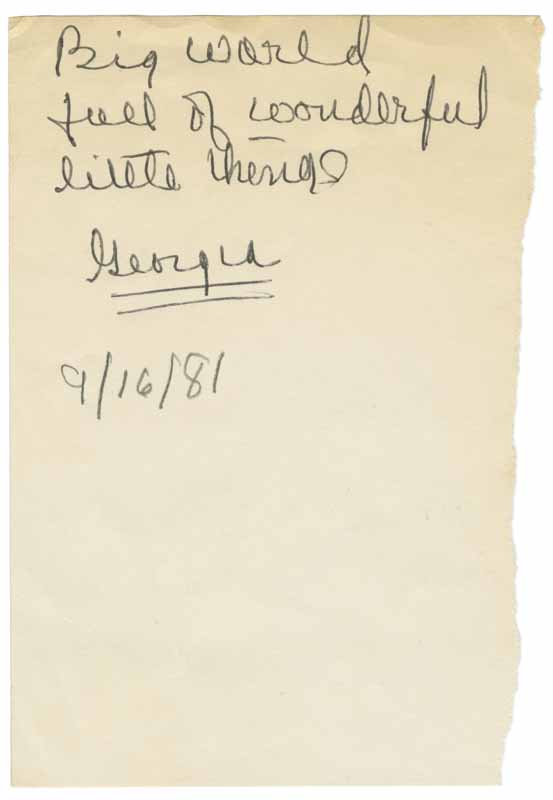 Big world
full of wonderful
little things
Georgia
9/16/81